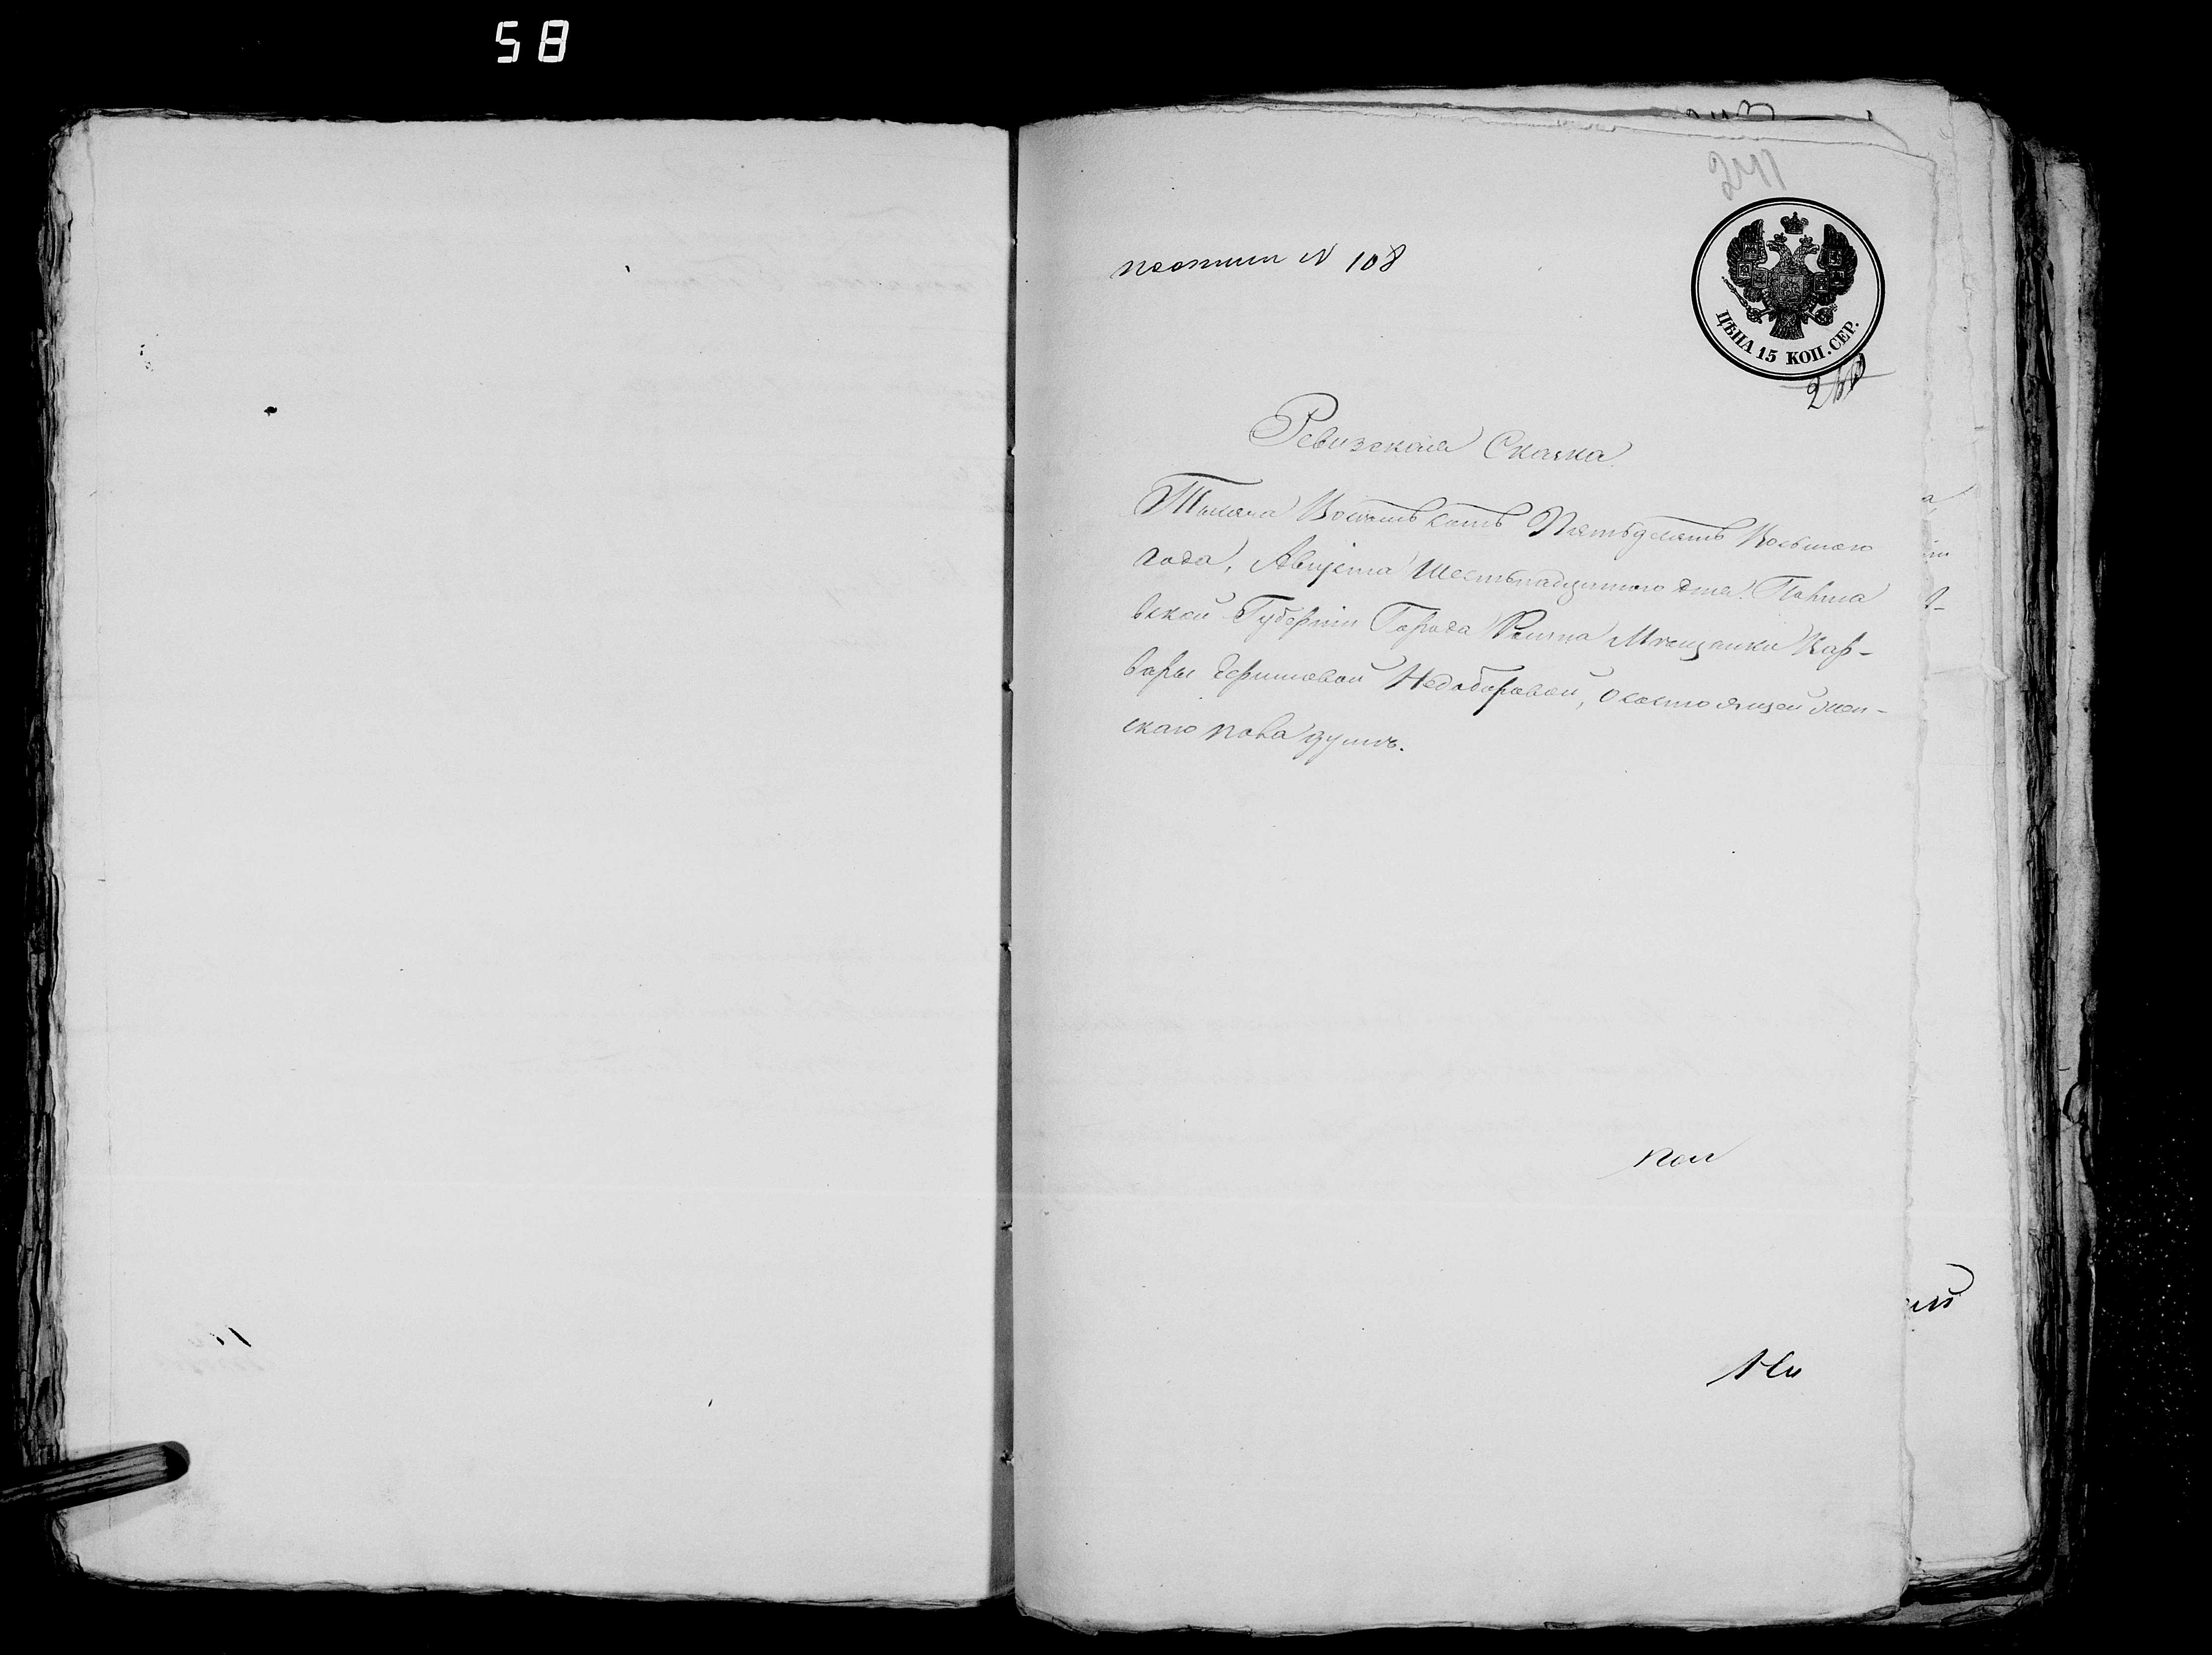 58
241
N 108
ЦѢНА 15 КОП. СЕР.
Ревизская Сказка
Тысяча Восемь сотъ Пятьдесятъ Восьмаго
года, Августа Шестьнадцатого дня. Полта
вской Губерніи Города Ромна Мѣщанки Вар-
вары Недоборовой, о состоящей жен-
скаго пола душѣ.